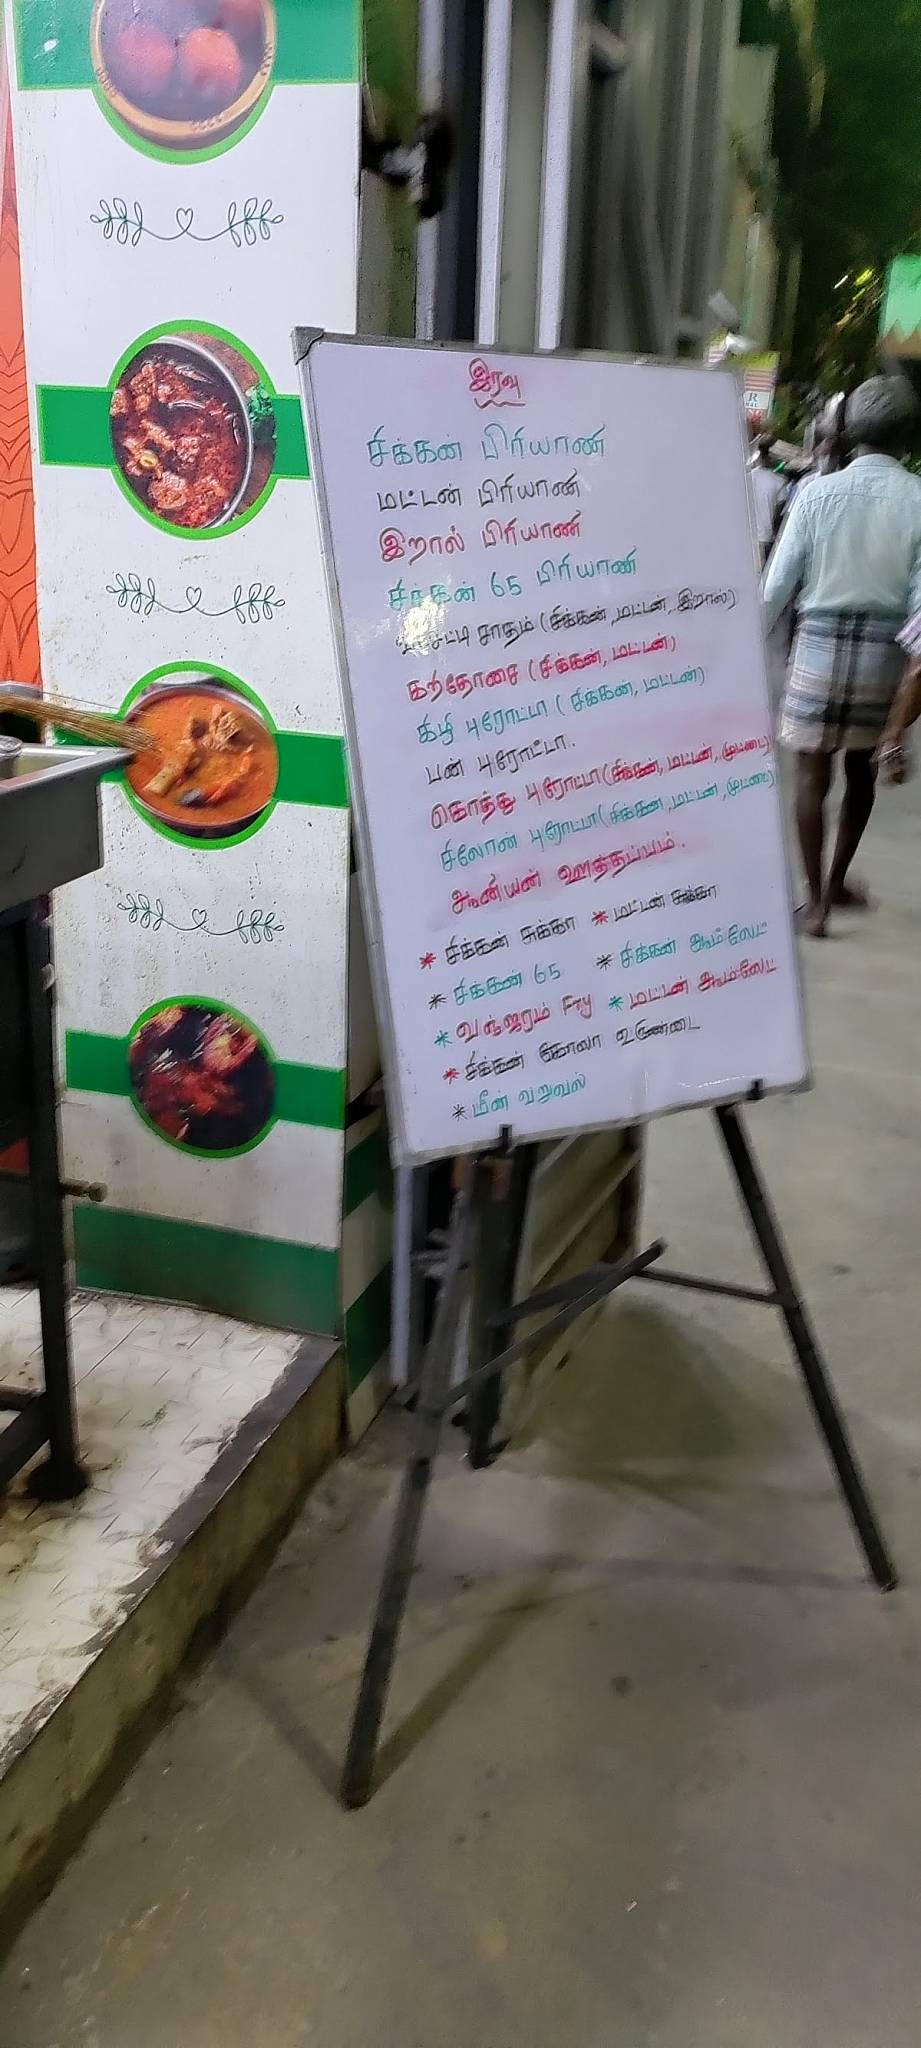 இரவு
சிக்கன் பிரியாணி
மட்டன் பிரியாணி
இறால் பிரியாணி
சிக்கன் 65 பிரியாணி
சாதம் (சிக்கன், மட்டன், இறால்)
கறிதோசை (சிக்கன், மட்டன்)
கிழி புரோட்டா (சிக்கன், மட்டன்)
பன் புரோட்டா.
கொத்து புரோட்டா (சிக்கன், மட்டன், முட்டை)
சிலோன் புரோட்டா (சிக்கன், மட்டன், முட்டை)
ஆனியன் ஊத்தப்பம்.
* சிக்கன் சுக்கா * மட்டன் சுக்கா
* சிக்கன் 65 * சிக்கன் ஆம்லேட்
* வஞ்ஜரம் Fry * மட்டன் ஆம்லேட்
* சிக்கன் கோலா உருண்டை
* மீன் வறுவல்